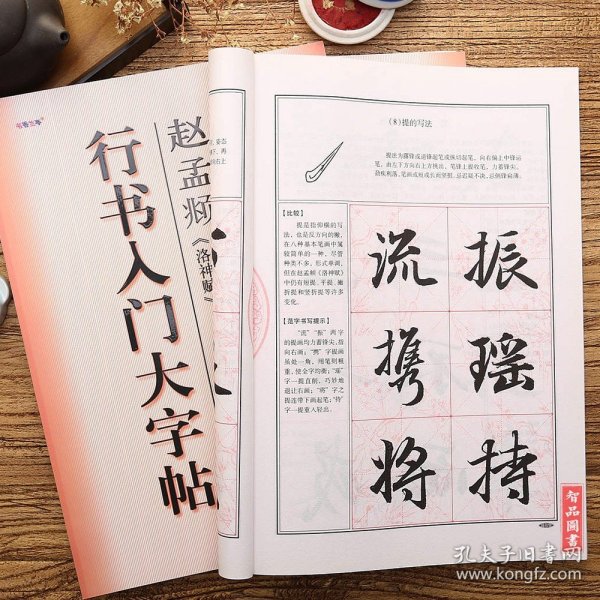 书香兰亭
赵孟頫《洛神赋》
行书入门大字帖
(8)提的写法
提法为露锋或逆锋起笔或纵切起笔，向右偏上中锋运
笔，由左下方向右上方挑出，笔锋上提收笔，力蓄锋尖，
劲疾利落，笔画或短或长而坚挺，忌迟疑不决，忌侧锋扁薄。
【比较】
提是指仰横的写
法，也是反方向的撇，
在八种基本笔画中属
较简单的一种，尽管
种类不多，形式单调，
但在赵孟頫《洛神赋》
中仍有短提、平提、撇
折提和竖折提等许多
变化。
【范字书写提示】
“流”“振”两字
的提画均力蓄锋尖，指
向右画；“携”字提画
虽处一角，用笔则粗
重，使全字均衡；“瑶”
字一提直削，巧妙地
退让右画；“将”字之
提连带下画起笔；“持”
字一提重入轻出。
流 振
携 瑶
将 持
智品圖書
孔夫子旧书网
www.kongfz.com